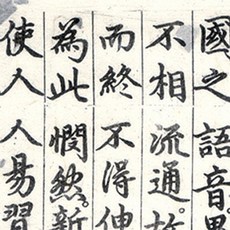 國之語音異
不相流通故
而終不得伸
為此憫然新
使人人易習